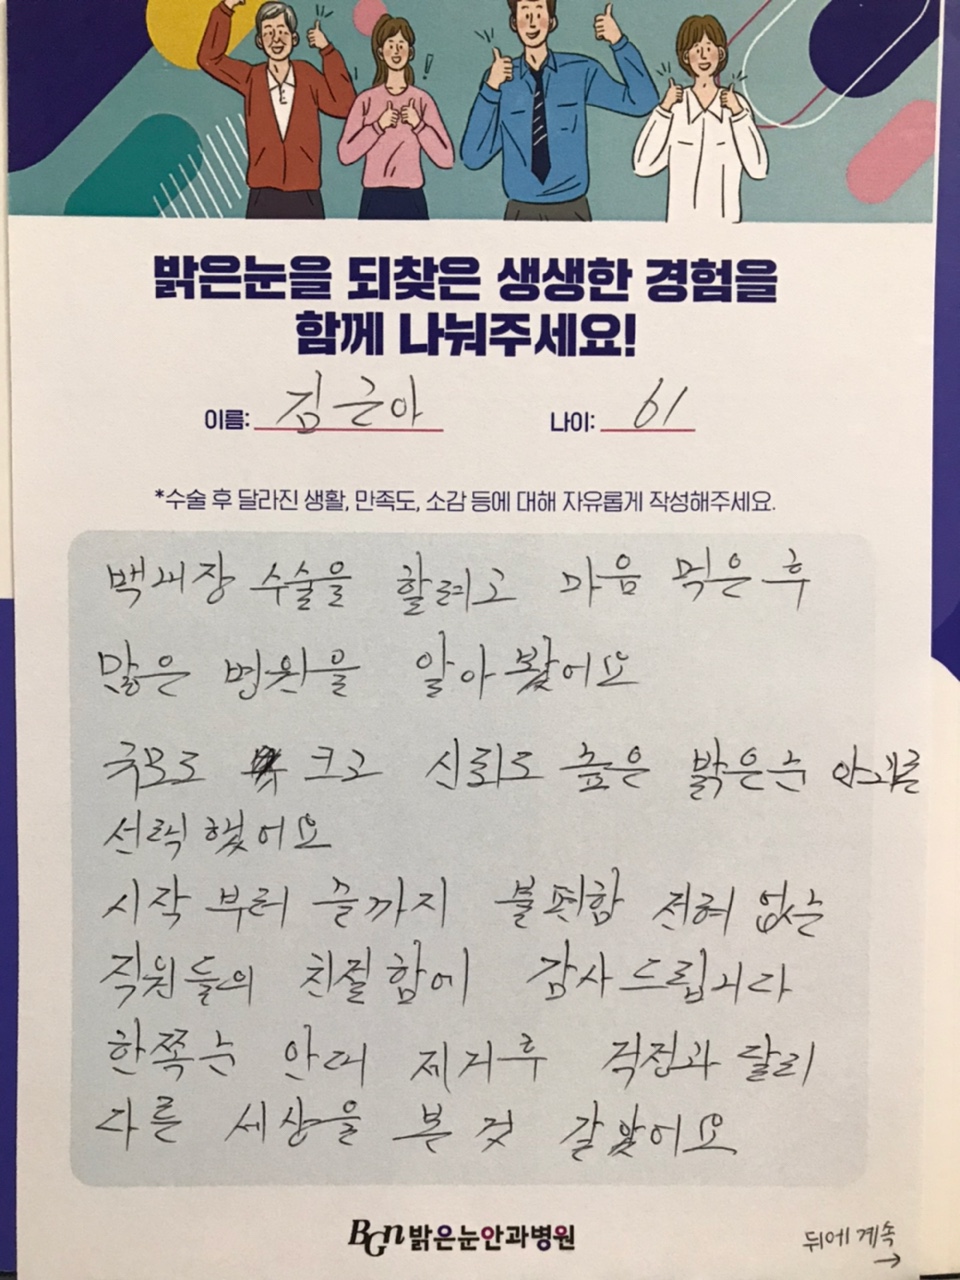 밝은눈을 되찾은 생생한 경험을
함께 나눠주세요!
이름: 김근아 나이: 61
*수술 후 달라진 생활, 만족도, 소감 등에 대해 자유롭게 작성해주세요.
백내장 수술을 할려고 마음 먹은 후
많은 병원을 알아 봤어요
규모도 크고 신뢰도 높은 밝은눈 안과를
선택했어요
시작 부터 끝까지 불편함 전혀 없는
직원들의 친절함에 감사드립니다
한쪽눈 안대 제거후 걱정과 달리
다른 세상을 본 것 같았어요
BGN밝은눈안과병원
뒤에 계속 →